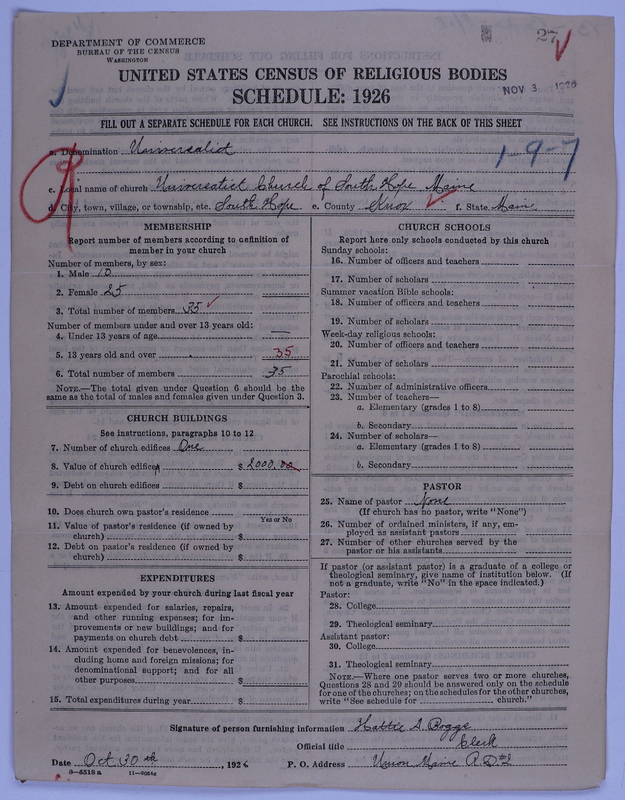 27
DEPARTMENT OF COMMERCE
BUREAU OF THE CENSUS
WASHINGTON
UNITED STATES CENSUS OF RELIGIOUS BODIES
SCHEDULE: 1926
NOV 3 1926
FILL OUT A SEPARATE SCHEDULE FOR EACH CHURCH. SEE INSTRUCTIONS ON THE BACK OF THIS SHEET
a. Denomination Universalist
1-9-7
c. Local name of church Universalist Church of South Hope Maine
d. City, town, village, or township, etc. South Hope e. County Knox f. State Maine
MEMBERSHIP
Report number of members according to definition of
member in your church
Number of members, by sex:
1. Male 10
2. Female 25
3. Total number of members 35
Number of members under and over 13 years old:
4. Under 13 years of age —
5. 13 years old and over 35
6. Total number of members 35
NOTE.—The total given under Question 6 should be the
same as the total of males and females given under Question 3.
CHURCH BUILDINGS
See instructions, paragraphs 10 to 12
7. Number of church edifices One
8. Value of church edifices $ 2000.00
9. Debt on church edifices $
10. Does church own pastor's residence
Yes or No
11. Value of pastor's residence (if owned by
church) $
12. Debt on pastor's residence (if owned by
church) $
EXPENDITURES
Amount expended by your church during last fiscal year
13. Amount expended for salaries, repairs,
and other running expenses; for im-
provements or new buildings; and for
payments on church debt $
14. Amount expended for benevolences, in-
cluding home and foreign missions; for
denominational support; and for all
other purposes $
15. Total expenditures during year $
CHURCH SCHOOLS
Report here only schools conducted by this church
Sunday schools:
16. Number of officers and teachers
17. Number of scholars
Summer vacation Bible schools:
18. Number of officers and teachers
19. Number of scholars
Week-day religious schools:
20. Number of officers and teachers
21. Number of scholars
Parochial schools:
22. Number of administrative officers
23. Number of teachers—
a. Elementary (grades 1 to 8)
b. Secondary
24. Number of scholars—
a. Elementary (grades 1 to 8)
b. Secondary
PASTOR
25. Name of pastor None
(If church has no pastor, write "None")
26. Number of ordained ministers, if any, em-
ployed as assistant pastors
27. Number of other churches served by the
pastor or his assistants
If pastor (or assistant pastor) is a graduate of a college or
theological seminary, give name of institution below. (If
not a graduate, write "No" in the space indicated.)
Pastor:
28. College
29. Theological seminary
Assistant pastor:
30. College
31. Theological seminary
NOTE.—Where one pastor serves two or more churches,
Questions 28 and 29 should be answered only on the schedule
for one of the churches; on the schedules for the other churches,
write "See schedule for church."
Signature of person furnishing information Hattie A. Boggs
Official title Clerk
Date Oct 30th, 1926 P. O. Address Union Maine R.D#2
8-5518a 11-9084a